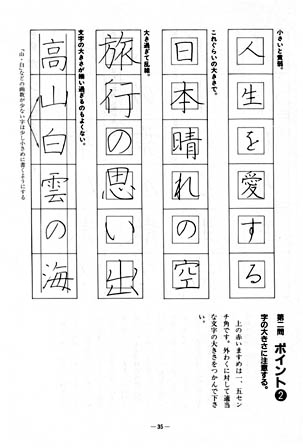 第二問 ポイント❷
字の大きさに注意する。
上の赤いますめは一、五セン
チ角です。外わくに対して適当
な文字の大きさをつかんで下さ
い。
小さいと貧弱。
人生を愛する
これぐらいの大きさで。
日本晴れの空
大き過ぎて乱雑。
旅行の思い出
文字の大きさが揃い過ぎるのもよくない。
高山白雲の海
「山・白」などの画数が少ない字は少し小さめに書くようにする
—35—